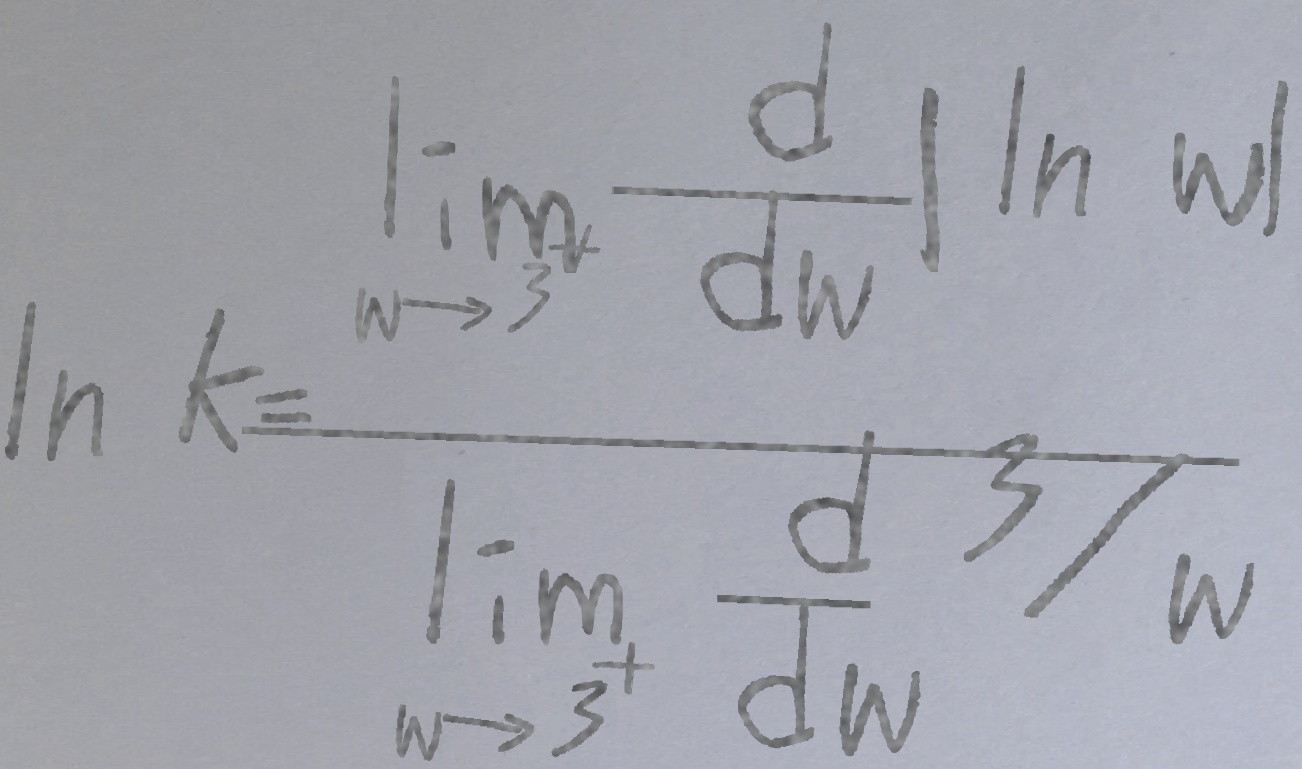 ln k = \frac{\lim_{w \to 3^+} \frac{d}{dw} |ln w|}{\lim_{w \to 3^+} \frac{d}{dw} 3/w}